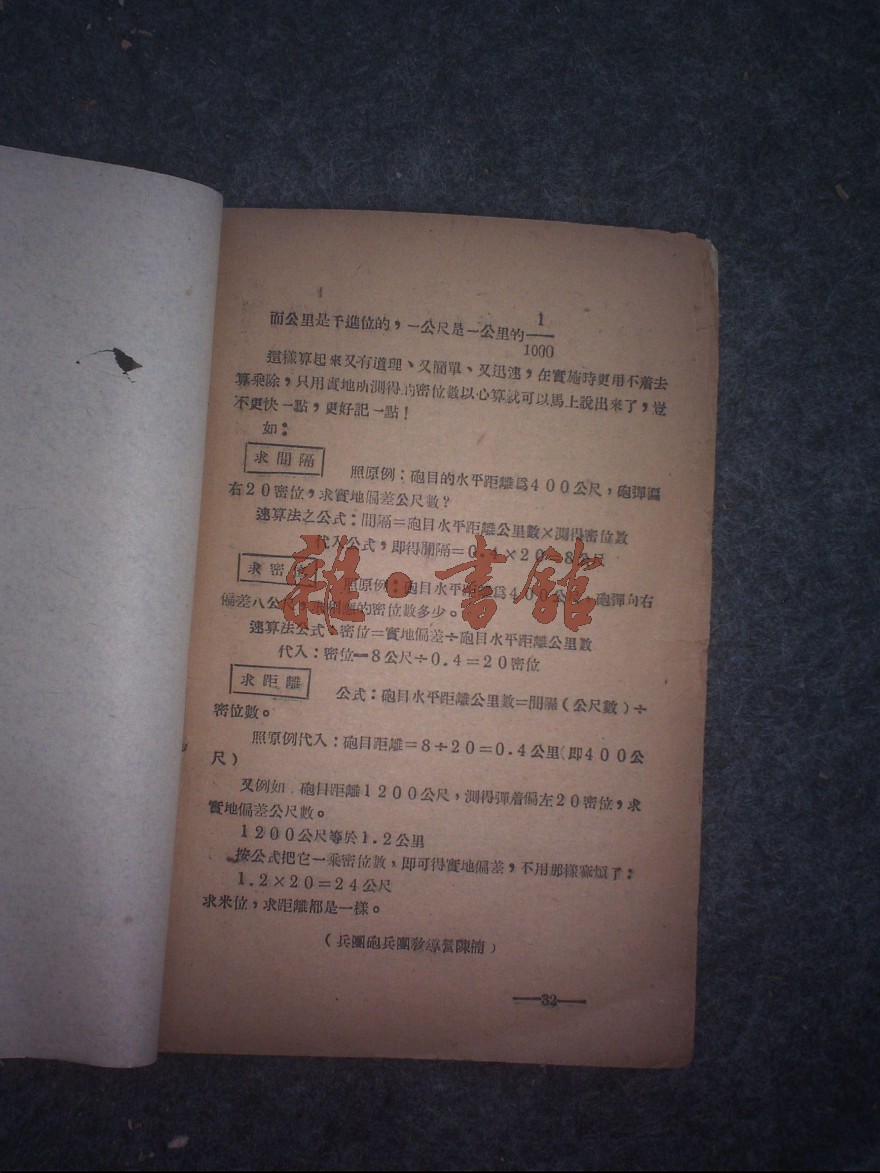 而公里是千進位的，一公尺是一公里的1/1000
這樣算起來又有道理、又簡單、又迅速，在實施時更用不着去
算乘除，只用實地所測得的密位數以心算就可以馬上說出來了，豈
不更快一點，更好記一點！
如：
求間隔　照原例：砲目的水平距離爲400公尺，砲彈偏
右20密位，求實地偏差公尺數？
速算法之公式：間隔＝砲目水平距離公里數×測得密位數
代入公式，即得間隔＝0.4×20＝8公尺
求密位　照原例：砲目水平距離爲400公尺，砲彈向右
偏差八公尺，求的密位數多少。
速算法公式：密位＝實地偏差÷砲目水平距離公里數
代入：密位＝8公尺÷0.4＝20密位
求距離　公式：砲目水平距離公里數＝間隔（公尺數）÷
密位數。
照原例代入：砲目距離＝8÷20＝0.4公里（即400公
尺）
又例如　砲目距離1200公尺，測得彈着偏左20密位，求
實地偏差公尺數。
1200公尺等於1.2公里
按公式把它一乘密位數，即可得實地偏差，不用那樣麻煩了：
1.2×20＝24公尺
求米位，求距離都是一樣。
（兵團砲兵團敎導營陳）
—32—
雜·書館